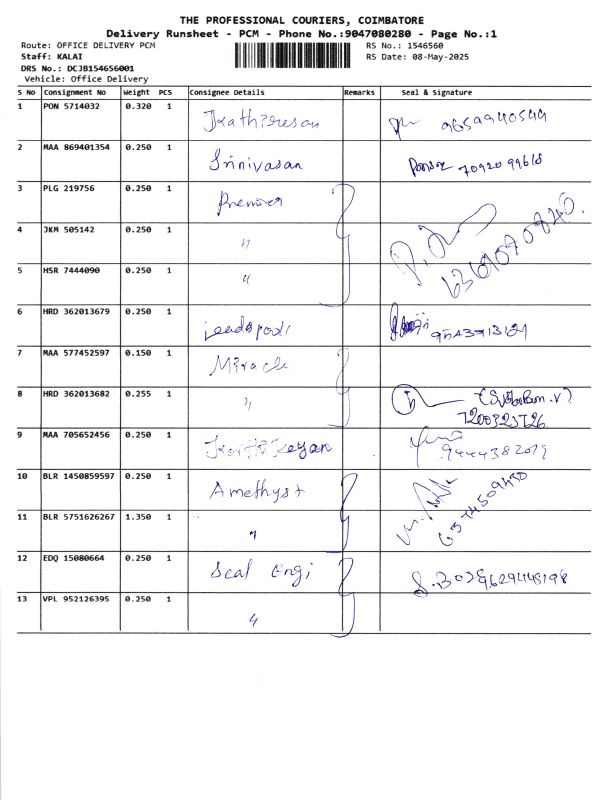 THE PROFESSIONAL COURIERS, COIMBATORE
Delivery Runsheet - PCM - Phone No.:9047080280 - Page No.:1
Route: OFFICE DELIVERY PCM
RS No.: 1546560
Staff: KALAI
RS Date: 08-May-2025
DRS No.: DCJB154656001
Vehicle: Office Delivery
S No Consignment No Weight PCS Consignee Details Remarks Seal & Signature
1 PON 5714032 0.320 1
2 MAA 869401354 0.250 1 Srinivasan
3 PLG 219756 0.250 1 Premier
4 JKM 505142 0.250 1 "
5 HSR 7444090 0.250 1 "
6 HRD 362013679 0.250 1
7 MAA 577452597 0.150 1 Miracle
8 HRD 362013682 0.255 1 "
9 MAA 705652456 0.250 1 Karthikeyan
10 BLR 1450859597 0.250 1 Amethyst
11 BLR 5751626267 1.350 1 "
12 EDQ 15080664 0.250 1 Seal Engi
13 VPL 952126395 0.250 1 "